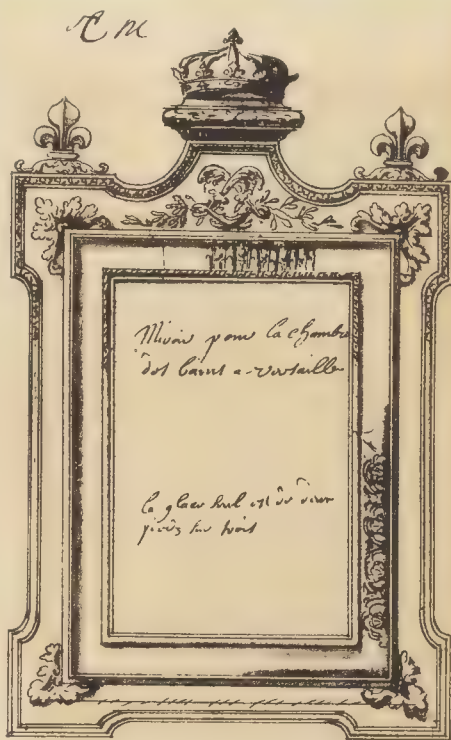 Miroir pour la chambre
des bains a versaille
la glace seul est de deux
pieds sur trois